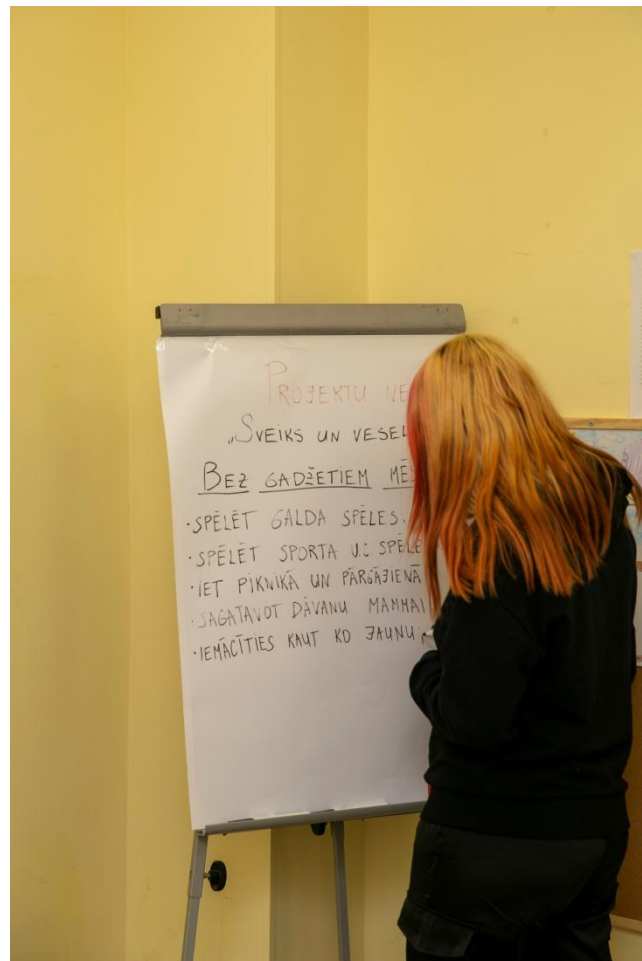 PROJEKTU NE
„SVEIKS UN VESEL
BEZ GADŽETIEM MĒ
· SPĒLĒT GALDA SPĒLES.
· SPĒLĒT SPORTA U.C SPĒLE
· IET PIKNIKĀ UN PĀRGĀJIENĀ
· SAGATAVOT DĀVANU MAMMAI
· IEMĀCĪTIES KAUT KO JAUNU